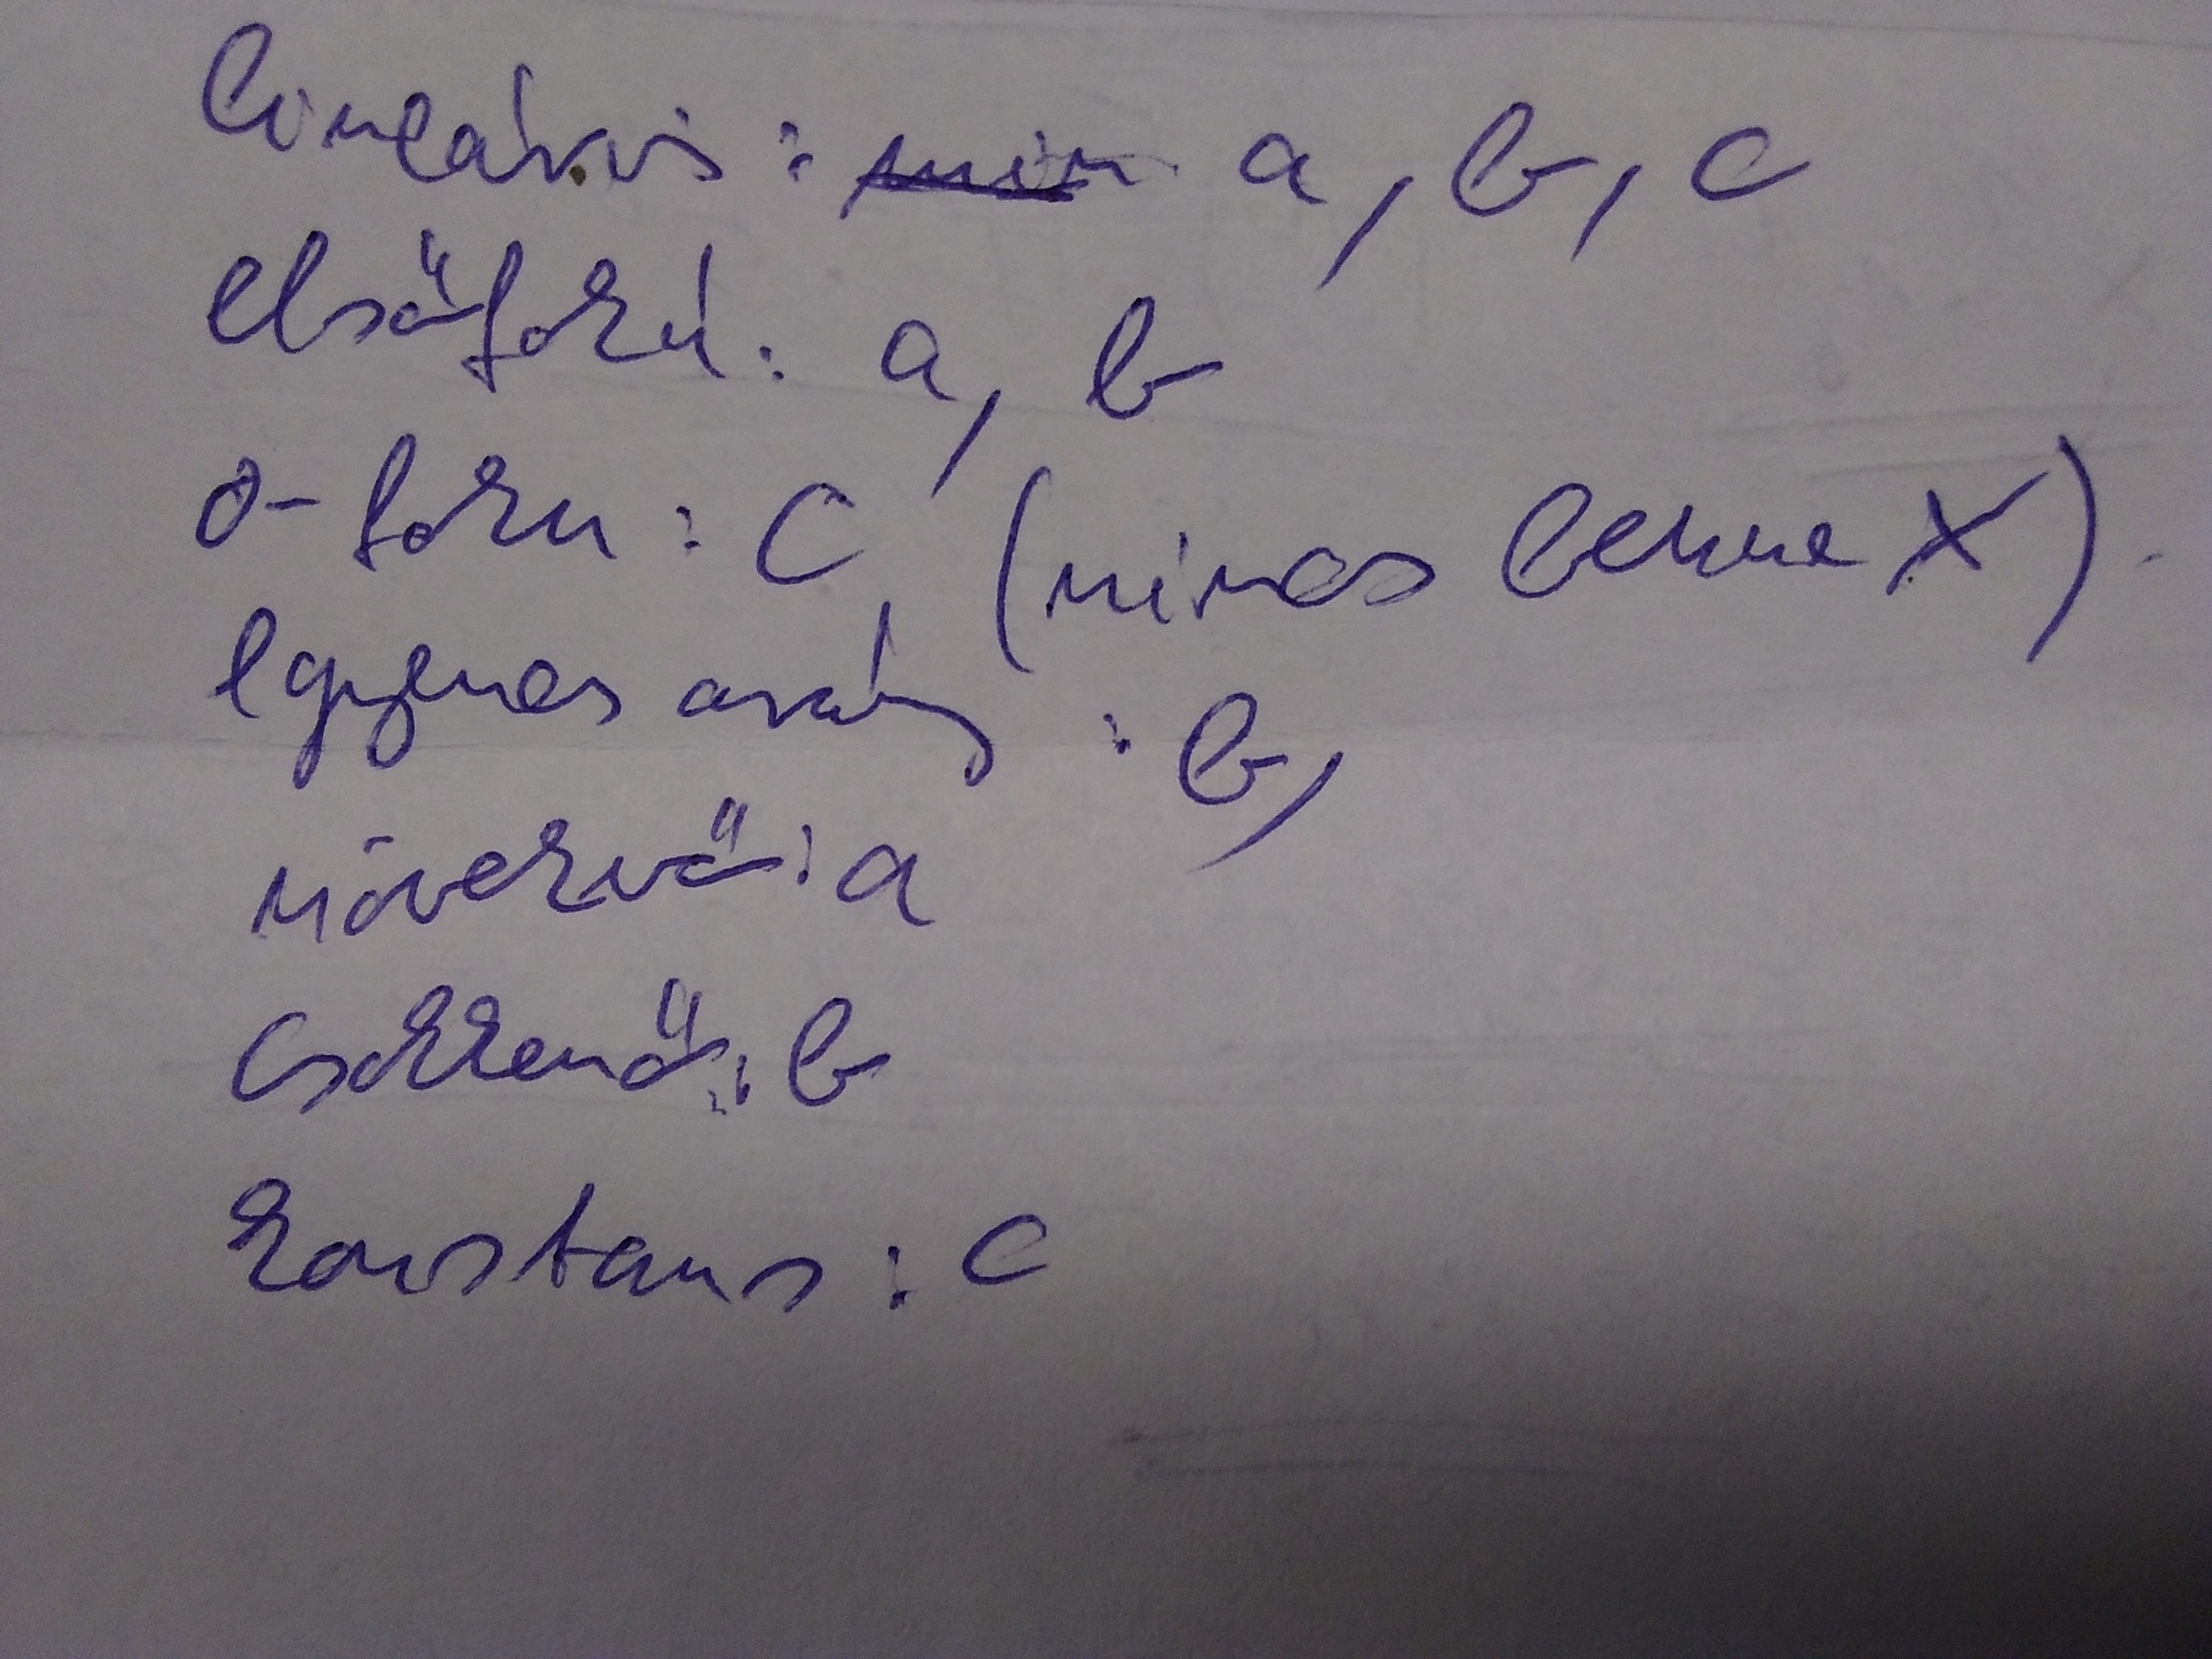 lineáris: a, b, c
elsőfokú: a, b
0-foku: c (nincs benne x).
egyenes arány: b,
növekvő: a
csökkenő: b
konstans: c